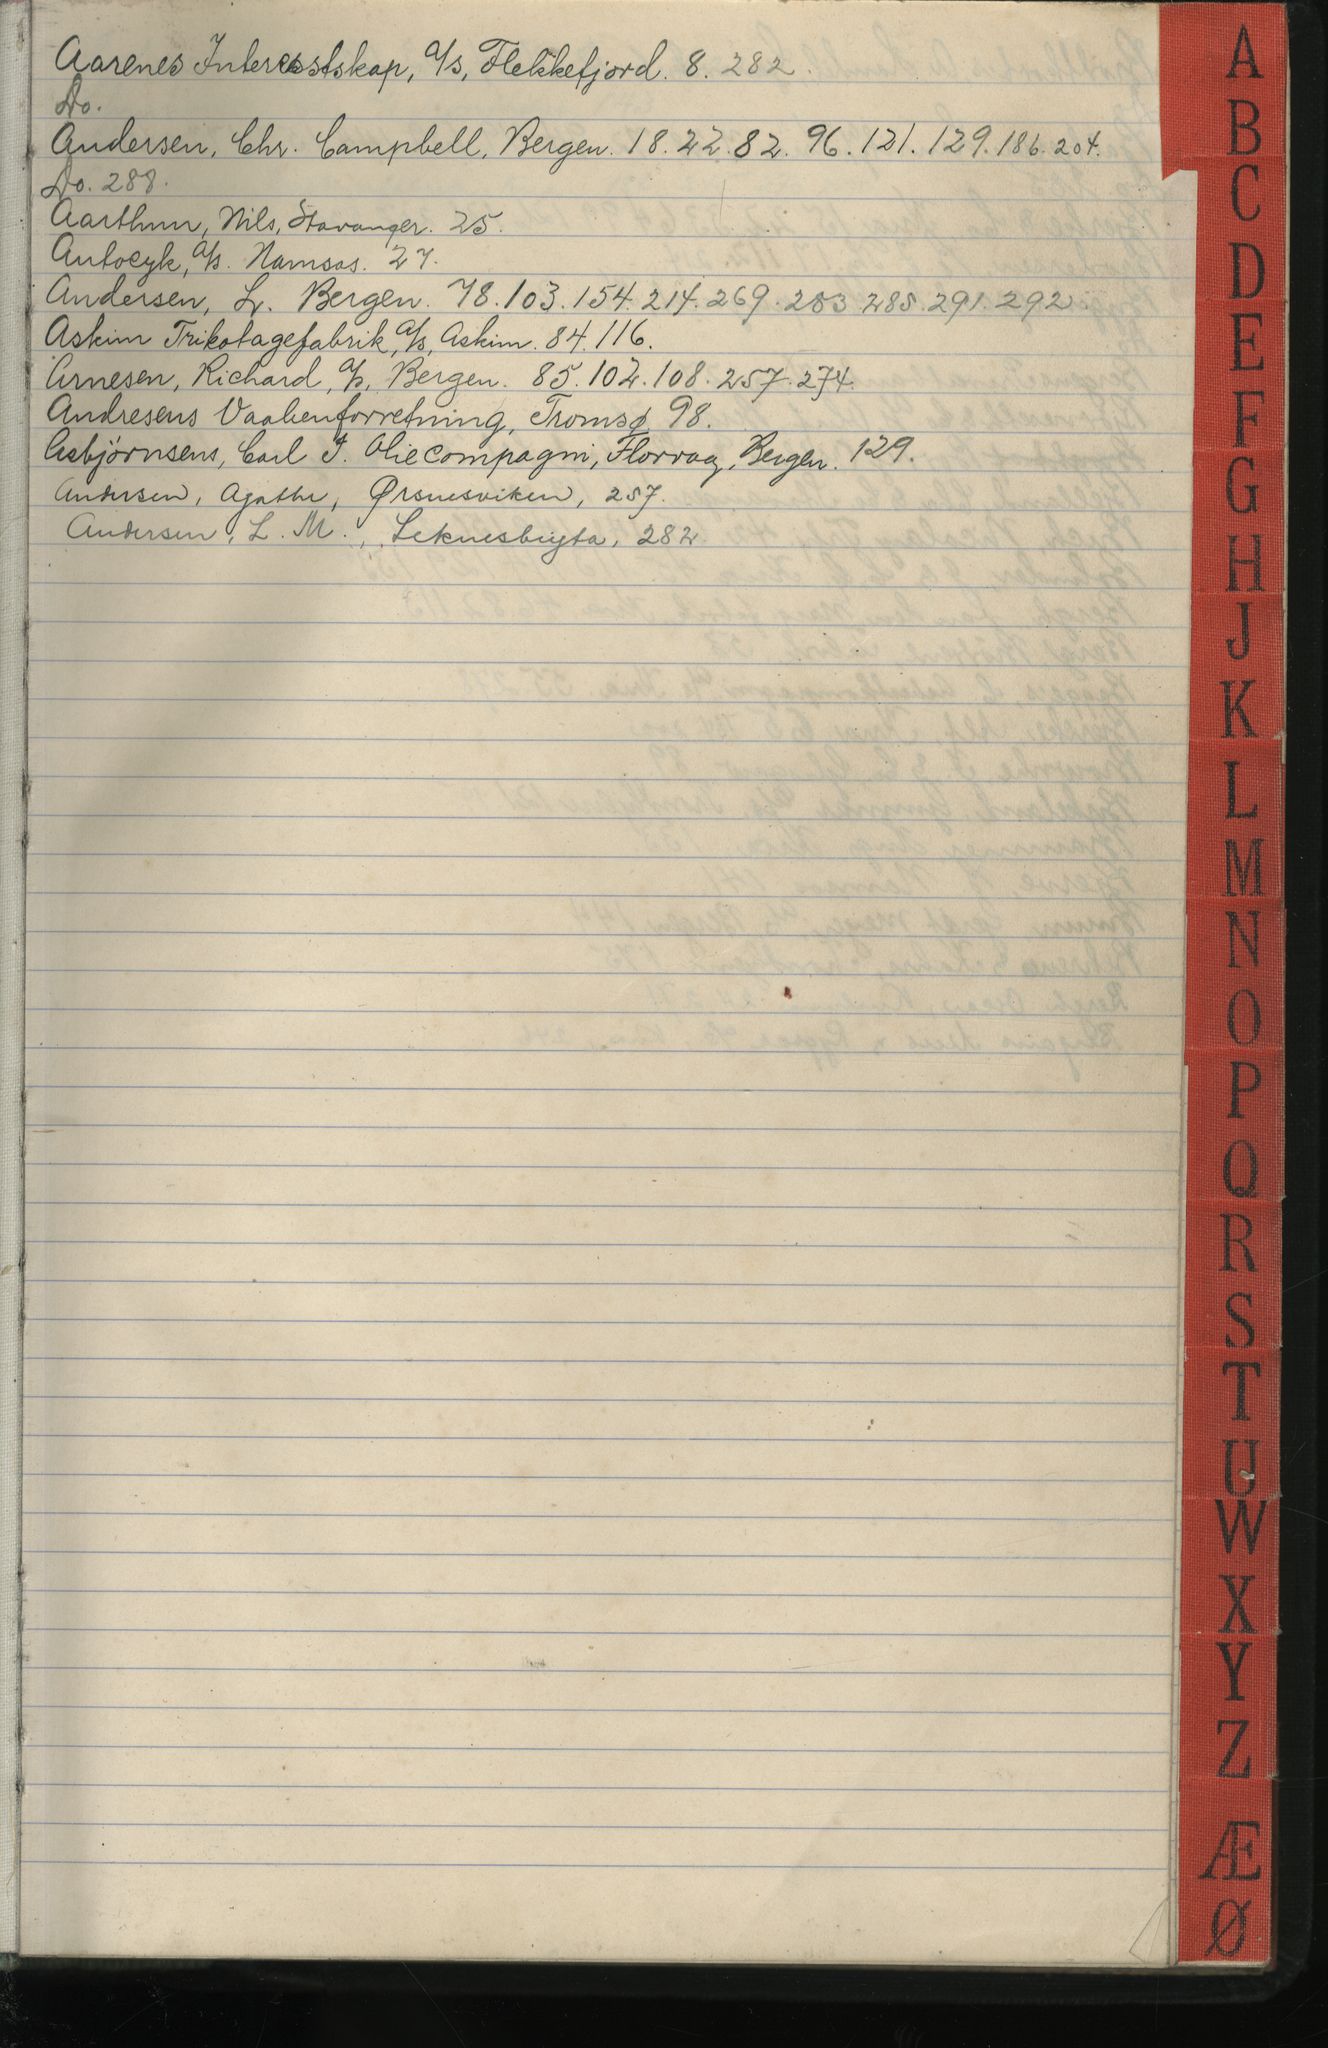 Aarenes Interesstskap, A/s, Flekkefjord. 8. 282.
Do.
Andersen, Chr. Campbell, Bergen. 18. 22. 82. 96. 121. 129. 186. 204.
Do. 288.
Aarthun, Nils, Stavanger. 25.
Autocyk, A/s. Namsos. 27.
Andersen, L. Bergen. 78. 103. 154. 214. 269. 283. 285. 291. 292.
Askim Trikotagefabrik, A/s, Askim. 84. 116.
Arnesen, Richard, A/s, Bergen. 85. 102. 108. 257. 274.
Andresens Vaabenforretning, Tromsø 98.
Asbjørnsens, Carl F. Oliecompagni, Florvag, Bergen. 129.
Andersen, Agathe, Ørsnesviken, 257.
Andersen, L. M., 282.
A
B
C
D
E
F
G
H
J
K
L
M
N
O
P
Q
R
S
T
U
W
X
Y
Z
Æ
Ø